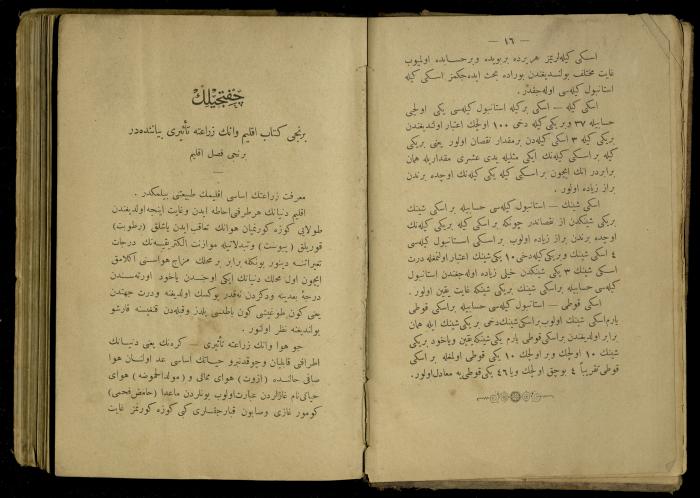 — ١٦ —
اسكی كیله‌لریمز هر یرده بر بویده و بر حسابده اولمیوب
غایت مختلف بولندیغندن بوراده بحث ایده‌جكمز اسكی كیله
استانبول كیله‌سی اوله‌جقدر.
اسكی كیله — اسكی بر كیله استانبول كیله‌سی یكی اولچی
حسابیله ٣٧ و بر یكی كیله دخی ١٠٠ اولچك اعتبار اولندیغندن
بر یكی كیله ٣ اسكی كیله‌دن بر مقدار نقصان اولور یعنی بر یكی
كیله بر اسكی كیله‌نك ایكی مثلیله یدی عشری مقداریله همان
برابردر انك ایچون بر اسكی كیله یكی كیله‌نك اوچده برندن
براز زیاده اولور.
اسكی شینك — استانبول كیله‌سی حسابیله بر اسكی شینك
بر یكی شینكدن از نقصاندر چونكه بر اسكی كیله بر یكی كیله‌نك
اوچده برندن براز زیاده اولوب بر اسكی استانبول كیله‌سی
٤ اسكی شینك و بر یكی كیله دخی ١٠ یكی شینك اعتبار اولنمغله درت
اسكی شینك ٣ یكی شینكدن خیلی زیاده اوله‌جغندن استانبول
كیله‌سی حسابیله بر اسكی شینك بر یكی شینكه غایت یقین اولور.
اسكی قوطی — استانبول كیله‌سی حسابیله بر اسكی قوطی
یارم اسكی شینك اولوب بر اسكی شینك دخی بر یكی شینك ایله همان
برابر اولدیغندن بر اسكی قوطی یارم یكی شینكه یقین و یاخود بر یكی
شینك ١٠ اولچك و بر اولچك ١٠ یكی قوطی اولمغله بر اسكی
قوطی تقریباً ٤ بوچق اولچك و یا ٤٦ یكی قوطی‌یه معادل اولور.
چفتجیلك
برنجی كتاب اقلیم و انك زراعته تأثیری بیاننده‌در
برنجی فصل اقلیم
معرفت زراعتك اساسی اقلیمك طبیعتنی بیلمكدر.
اقلیم دنیانك هر طرفنی احاطه ایدن و غایت اینجه اولدیغندن
طولایی كوزه كورنمیان هوانك تعاقب ایدن یاشلق (رطوبت)
قوریلق (یبوست) و تبدلاتیله موازنت الكتریقیه‌سنك درجات
تغیراتنه دینور بونكله برابر بر محلك مزاج هواسنی اكلامق
ایچون اول محلك دنیانك ایكی اوجندن یاخود اورته‌سندن
درجۀ بعدینه و دكزدن نه‌قدر یوكسك اولدیغنه و درت جهتدن
یعنی كون طوغیشی كون باطیسی یلدز و قبله‌دن قنغیسنه قارشو
بولندیغنه نظر اولنور.
جو هوا و انك زراعته تأثیری — كره‌نك یعنی دنیانك
اطرافنی قاپلیان و چوقدنبرو حیاتك اساسی عد اولنان هوا
صافی حالنده (ازوت) هوای مماتی و (مولد الحموضه) هوای
حیاتی نام غازلردن عبارت اولوب بونلردن ماعدا (حامض فحمی)
كومور غازی و صابون قبارجقلری كبی كوزه كورنمز غایت